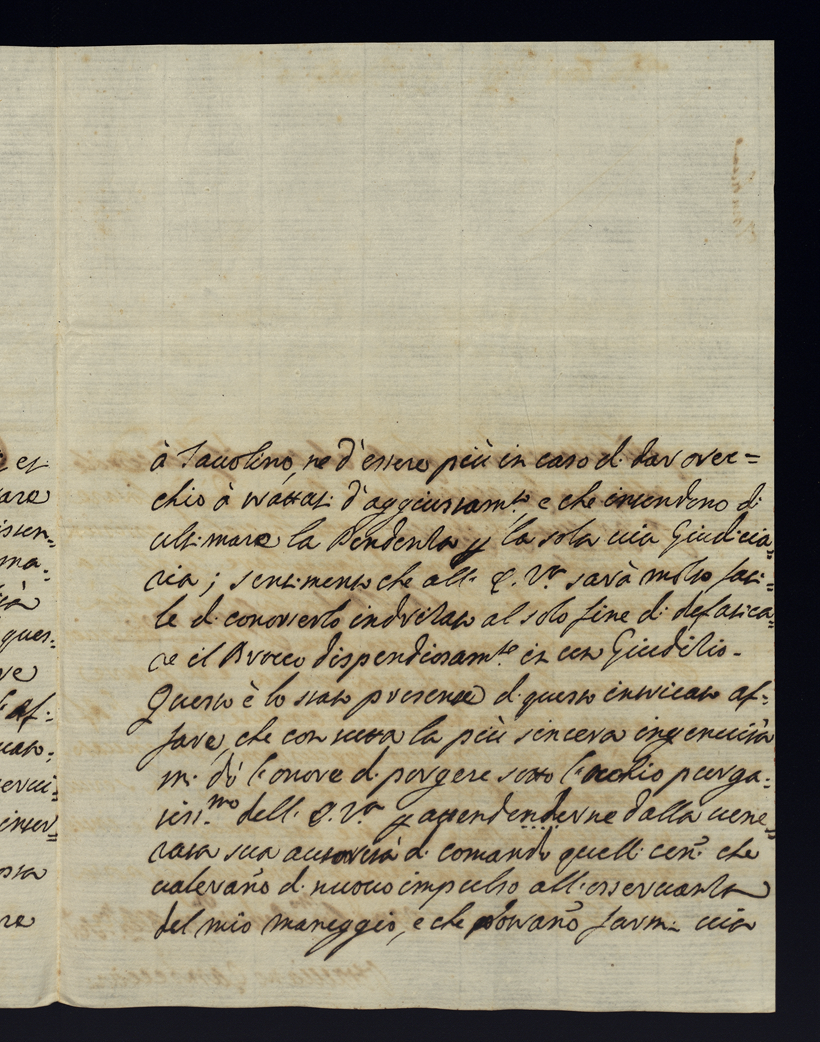 à Tauolino, ne d'essere più in caso di dar orec=
chio à trattati d'aggiustam.to e che intendono di
ultimare la Pendenza p la sola uia Giudicia=
ria; sentimento che all' E. V.ra sarà molto faci=
le di conoscerlo indrizzato al solo fine di defatica=
re il Brocco dispendiosam.te in un Giudizio.
Questo è lo stato presente di questo intricato af=
fare, che con tutta la più sincera ingenuità
mi dò l'onore di porgere sotto l'occhio purga=
tiss.mo dell' E. V.ra p attenderne dalla uene=
rata sua autorità di comando quelli cenni che
ualeranno di nuouo impulso all'osseruanza
del mio maneggio, e che potranno farmi uia
et
tare
ma=
ques=
re
af=
serui=
osta
re